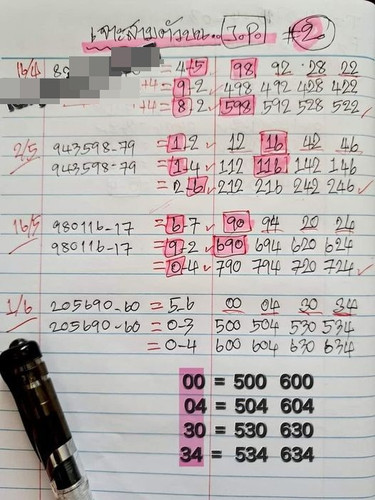 เจาะสามตัวบน.. J.P. #2
16/4 89 = 4-5 98 92 28 22
+4 = 9-2 498 492 428 422
+4 = 8-2 598 592 528 522
2/5 943598-79 = 1-2 12 16 42 46
943598-79 = 1-4 112 116 142 146
= 2-6 212 216 242 246
16/5 980116-17 = 6-7 90 94 20 24
980116-17 = 9-2 690 694 620 624
= 0-4 790 794 720 724
1/6 205690-60 = 5-6 00 04 30 34
205690-60 = 0-3 500 504 530 534
= 0-4 600 604 630 634
00 = 500 600
04 = 504 604
30 = 530 630
34 = 534 634